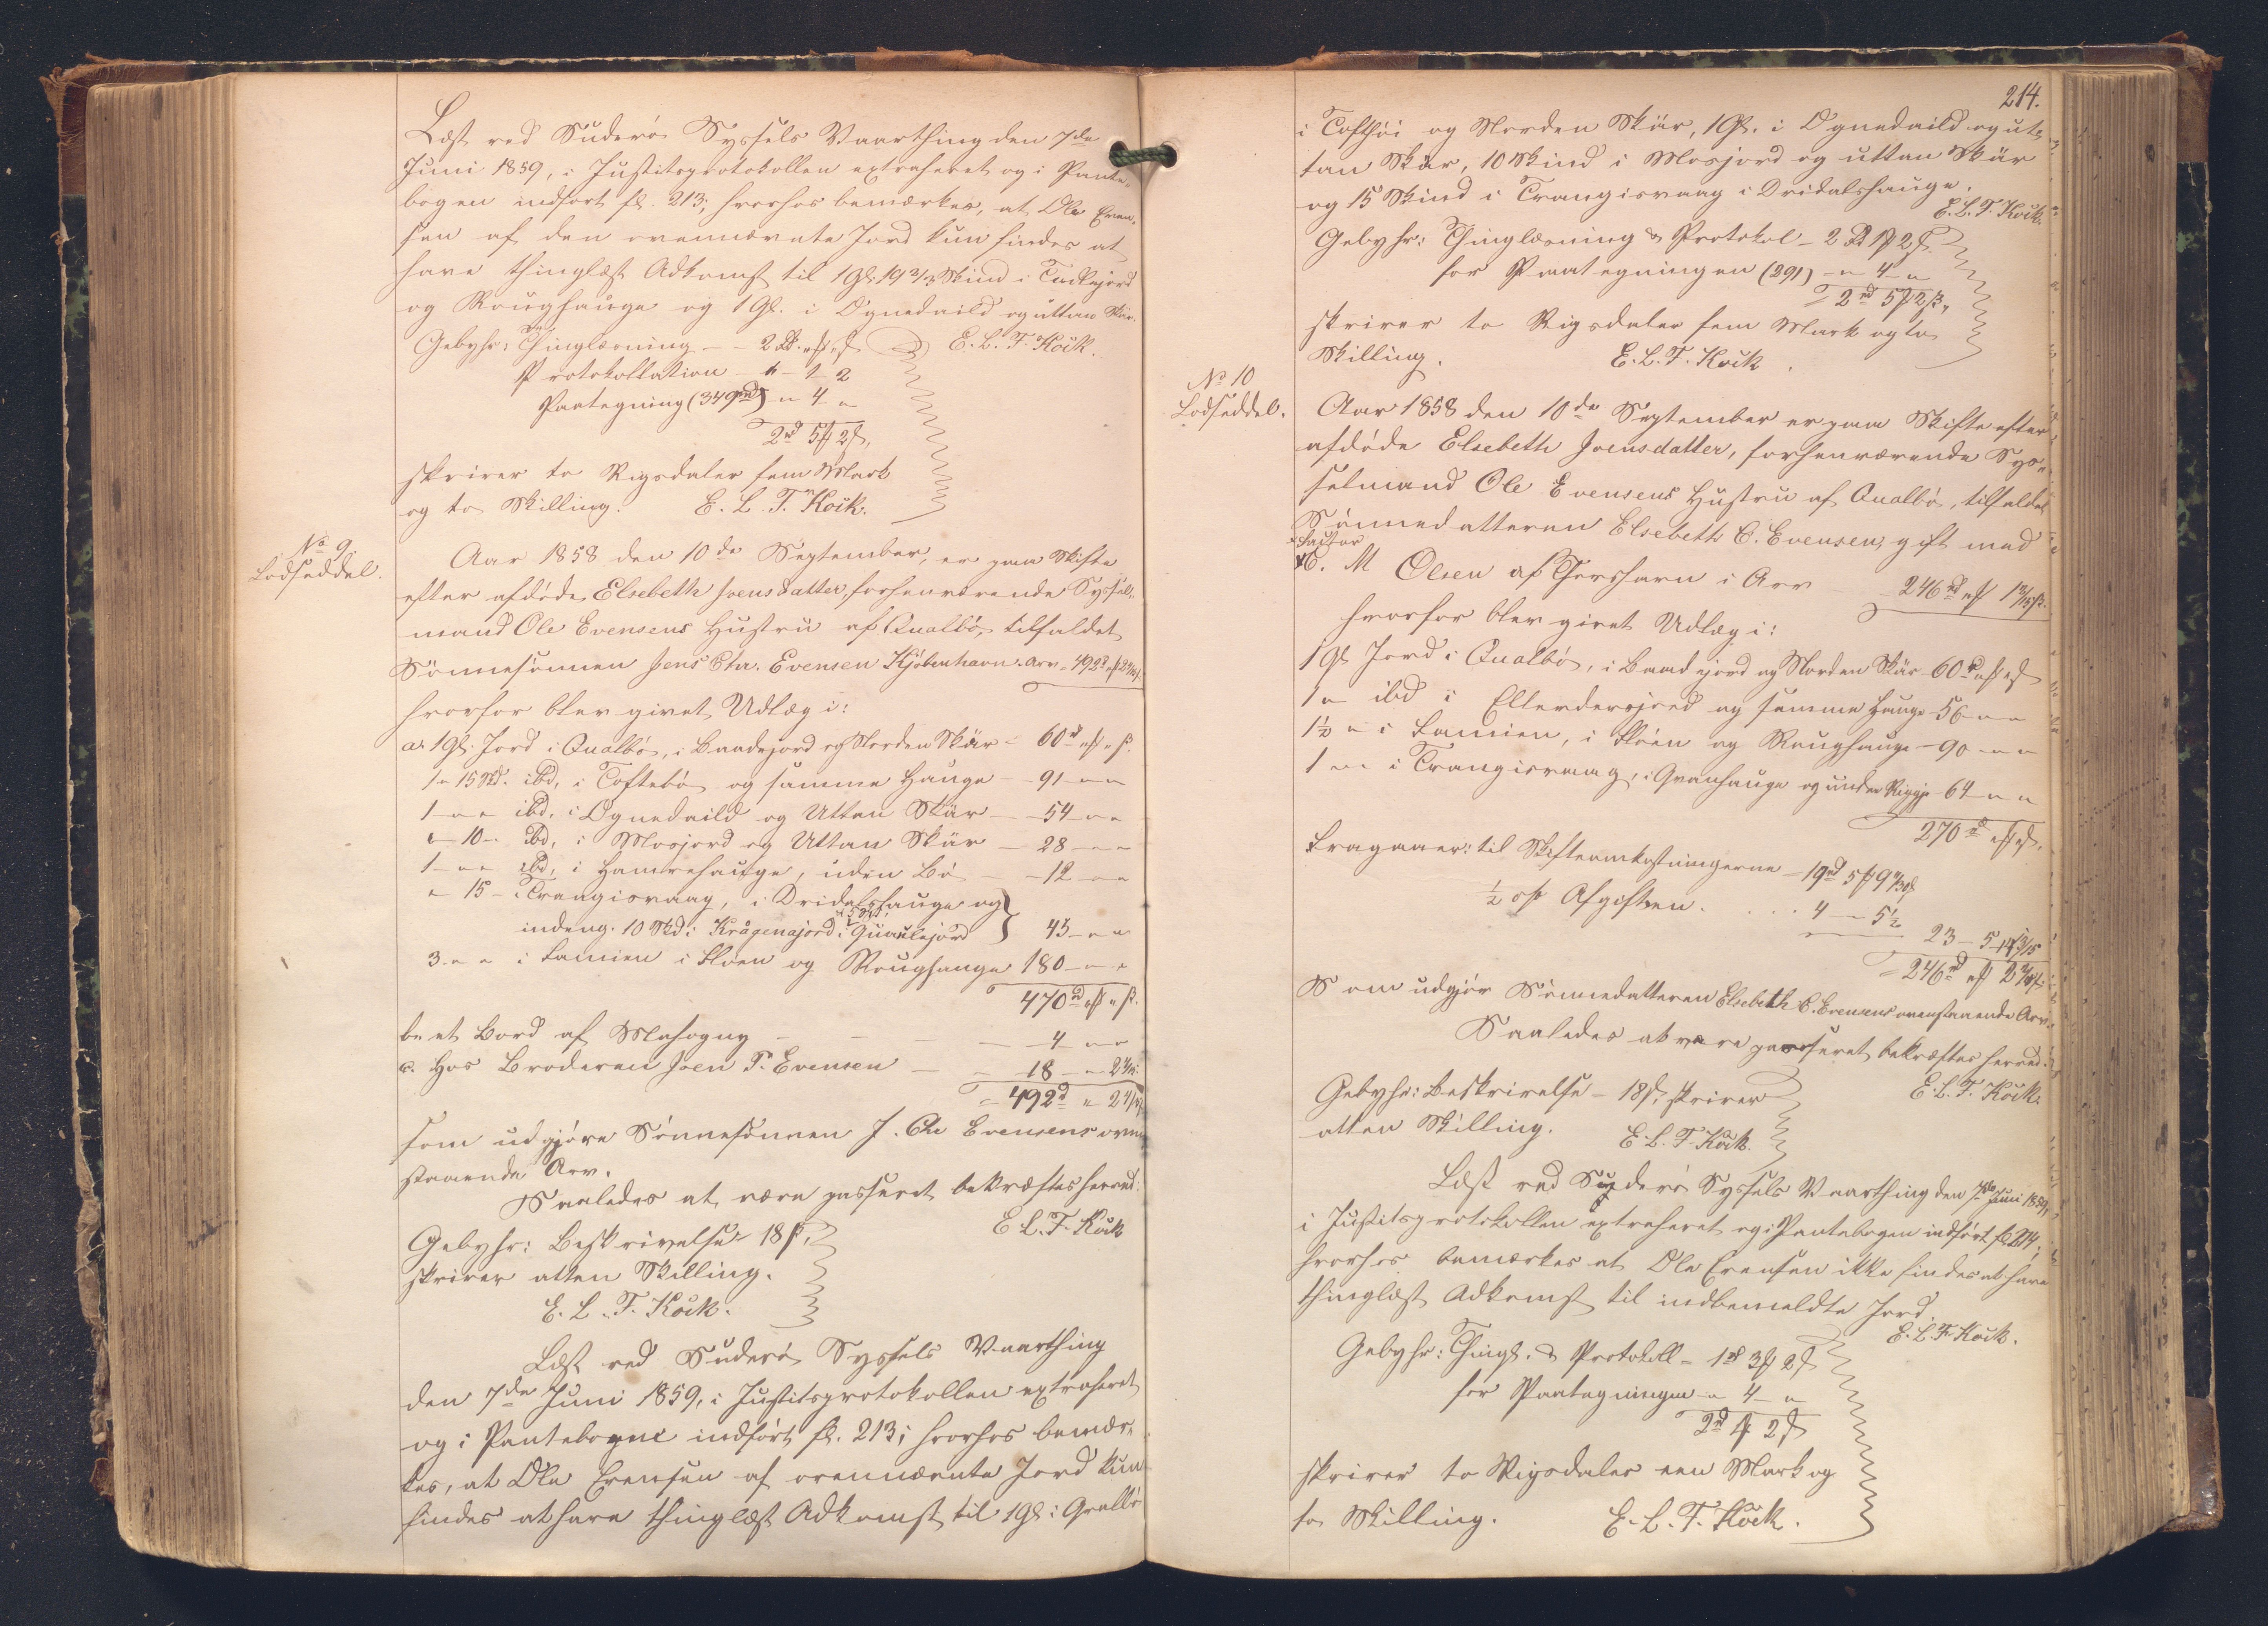 Læst ved Suderö Syssels Vaarthing den 7de
Juni 1859, i Justitsprotokollen extraheret og i Pante-
bogen indfört fl. 213; hvorhos bemærkes, at Ole Even-
sen af den ovennævnte Jord kun findes at
have thinglæst Adkomst til 1 Gl. 19 2/3 Skind i
og Roughauge og 1 Gl. i Ognedaild og uttan Skär.
Gebyhr: Thinglæsning - - 2 Rd. " " E. L. T. Kock.
Protokollation - " - 1 - 2
Paategning (349) - " 4 "
2rd 5 2
skriver to Rigsdaler fem Mark
og to Skilling. E. L. T. Kock.
No 9
Lodseddel.
Aar 1858 den 10de September, er paa Skifte
efter afdöde Elsebeth Joensdatter, forhenværende Syssel-
mand Ole Evensens Hustru af Qualbö, tilfaldet
Sönnesönnen Jens Chr. Evensen Kjöbenhavn i Arv - 492
hvorfor blev givet Udlæg i:
a. 1 Gl. Jord i Qualbö, i Baadejord og Norden Skär - 60 " "
1 " 15 Skd. ibd, i Toftebö og samme Hauge - 91 - " "
1 - " " ibd, i Ognedaild og Uttan Skär - 54 " "
" - 10 - ibd, i Mosjord og Uttan Skär - 28 - " "
1 - " " ibd, i Hamrehauge, uden Bö - 12 - " "
" 15 - i Trangisvaag, i Dridalshauge og
indeng. 10 Skd i Krågenajord i 43 - " "
3 - " " i Famien i Floen og Roughauge 180 - " "
470 " "
b. et Bord af Mahogny - - - - 4 " "
c. Hos Broderen Joen P. Evensen - - 18 - "
= 492 "
som udgjöre Sönnesönnen J. Chr Evensens oven-
staaende Arv.
Saaledes at være passeret bekræftes herved.
E. L. T. Kock
Gebyhr: Beskrivelse 18 ß,
skriver atten Skilling.
E. L. T. Kock.
Læst ved Suderö Syssels Vaarthing
den 7de Juni 1859, i Justitsprotokollen extraheret
og i Pantebogen indfört fl. 213; hvorhos bemær-
kes, at Ole Evensen af ovennævnte Jord kun
findes at have thinglæst Adkomst til 1 Gl. i Qvalbö
214.
i og Norden Skär, 1 Gl. i Ognedaild og ut-
tan Skär, 10 Skind i Mosjord og uttan Skär
og 15 Skind i Trangisvaag i Dridalshauge.
E. L. T. Kock.
Gebyhr: Thinglæsning & Protokol - 2 1 2
for Paategningen (291) - " 4 "
= 2rd 5 2
skriver to Rigsdaler fem Mark og to
Skilling. E. L. T. Kock.
No 10
Lodseddel.
Aar 1858 den 10de September er paa Skifte efter
afdöde Elsebeth Joensdatter, forhenværende Sys-
selmand Ole Evensens Hustru af Qualbö, tilfaldet
Sönnedatteren Elsebeth C. Evensen, gift med
M Olsen af Thorshavn i Arv 246
hvorfor blev givet Udlæg i:
1 Gl. Jord i Qualbö, i Baadejord og Norden Skär 60 " "
1 " ibd i Ellerdersjord og samme Hauge - 56 - " "
1½ " i Famien, i Floen og Roughauge - 90 - " "
1 " " i Trangisvaag, i Qvanhauge og under Rygge 64 - " "
270 " "
Fragaaer: til Skifteomkostningerne - 19rd 5 9
½ af Afgiften . . . . 4 - 5½
23 - 5
= 246
Som udgjör Sönnedatteren Elsebeth C. Evensens ovenstaaende Arv.
Saaledes at være passeret bekræftes herved.
E. L. T. Kock.
Gebyhr: Beskrivelse - 18 ß, skriver
atten Skilling. E. L. T. Kock.
Læst ved Suderö Syssels Vaarthing den 7de Juni 1859,
i Justitsprotokollen extraheret og i Pantebogen indfört fl. 214;
hvorhos bemærkes at Ole Evensen ikke findes at have
thinglæst Adkomst til indbemeldte Jord.
E. L. T. Kock.
Gebyhr: Thingl. & Protokoll - 1 3 2
for Paategningen - " 4 - "
2 1 2
skriver to Rigsdaler een Mark og
to Skilling. E. L. T. Kock.